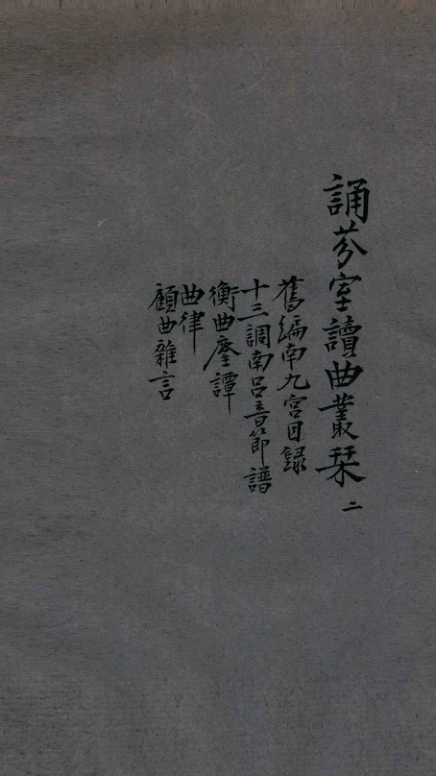 誦芬室讀曲叢栞 二
舊編南九宮目錄
十三調南呂音節譜
衡曲麈譚
曲律
顧曲雜言